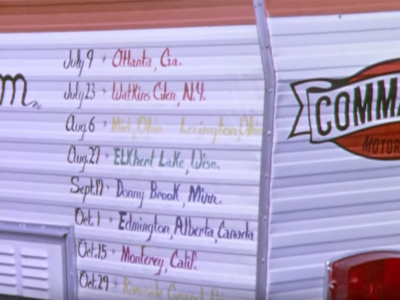 m
July 9 - Atlanta, Ga.
July 23 - Watkins Glen, N.Y.
Aug. 6 - Mid, Ohio Lexington, Ohio
Aug. 27 - Elkhert Lake, Wisc.
Sept. 17 - Donny Brook, Minn.
Oct. 1 - Edmington, Alberta, Canada
Oct. 15 - Monterey, Calif.
Oct. 29 - Riverside Grand
COMMA
MOTOR